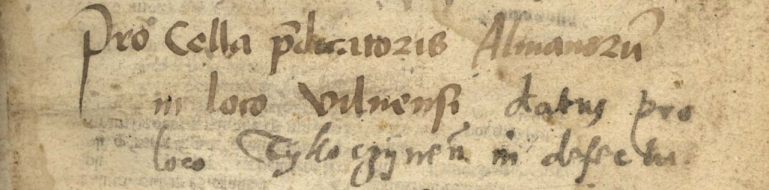 Pro Cella p̄dicatoris Almanorū
in loco vilnensi datus pro
loco Tykoczÿneñ in defectu